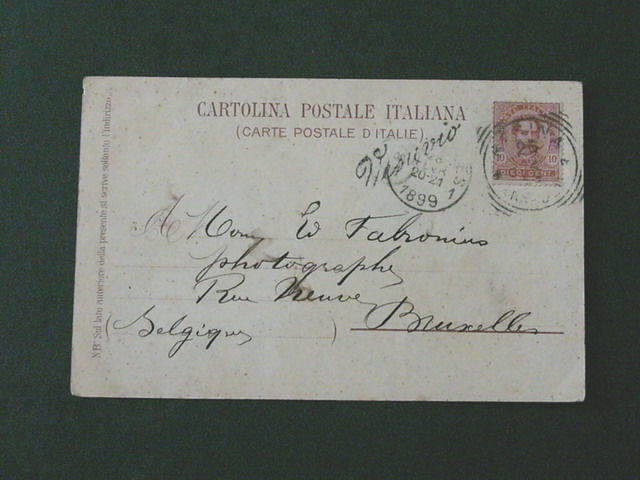 CARTOLINA POSTALE ITALIANA
(CARTE POSTALE D'ITALIE)
10 10
DIECI CENT.
25
20-21
1899
1
A Mons Ed Fabronius
photographe
Rue Neuve
Bruxelles
(Belgique)
NB. Sul lato anteriore della presente si scrive soltanto l'indirizzo.